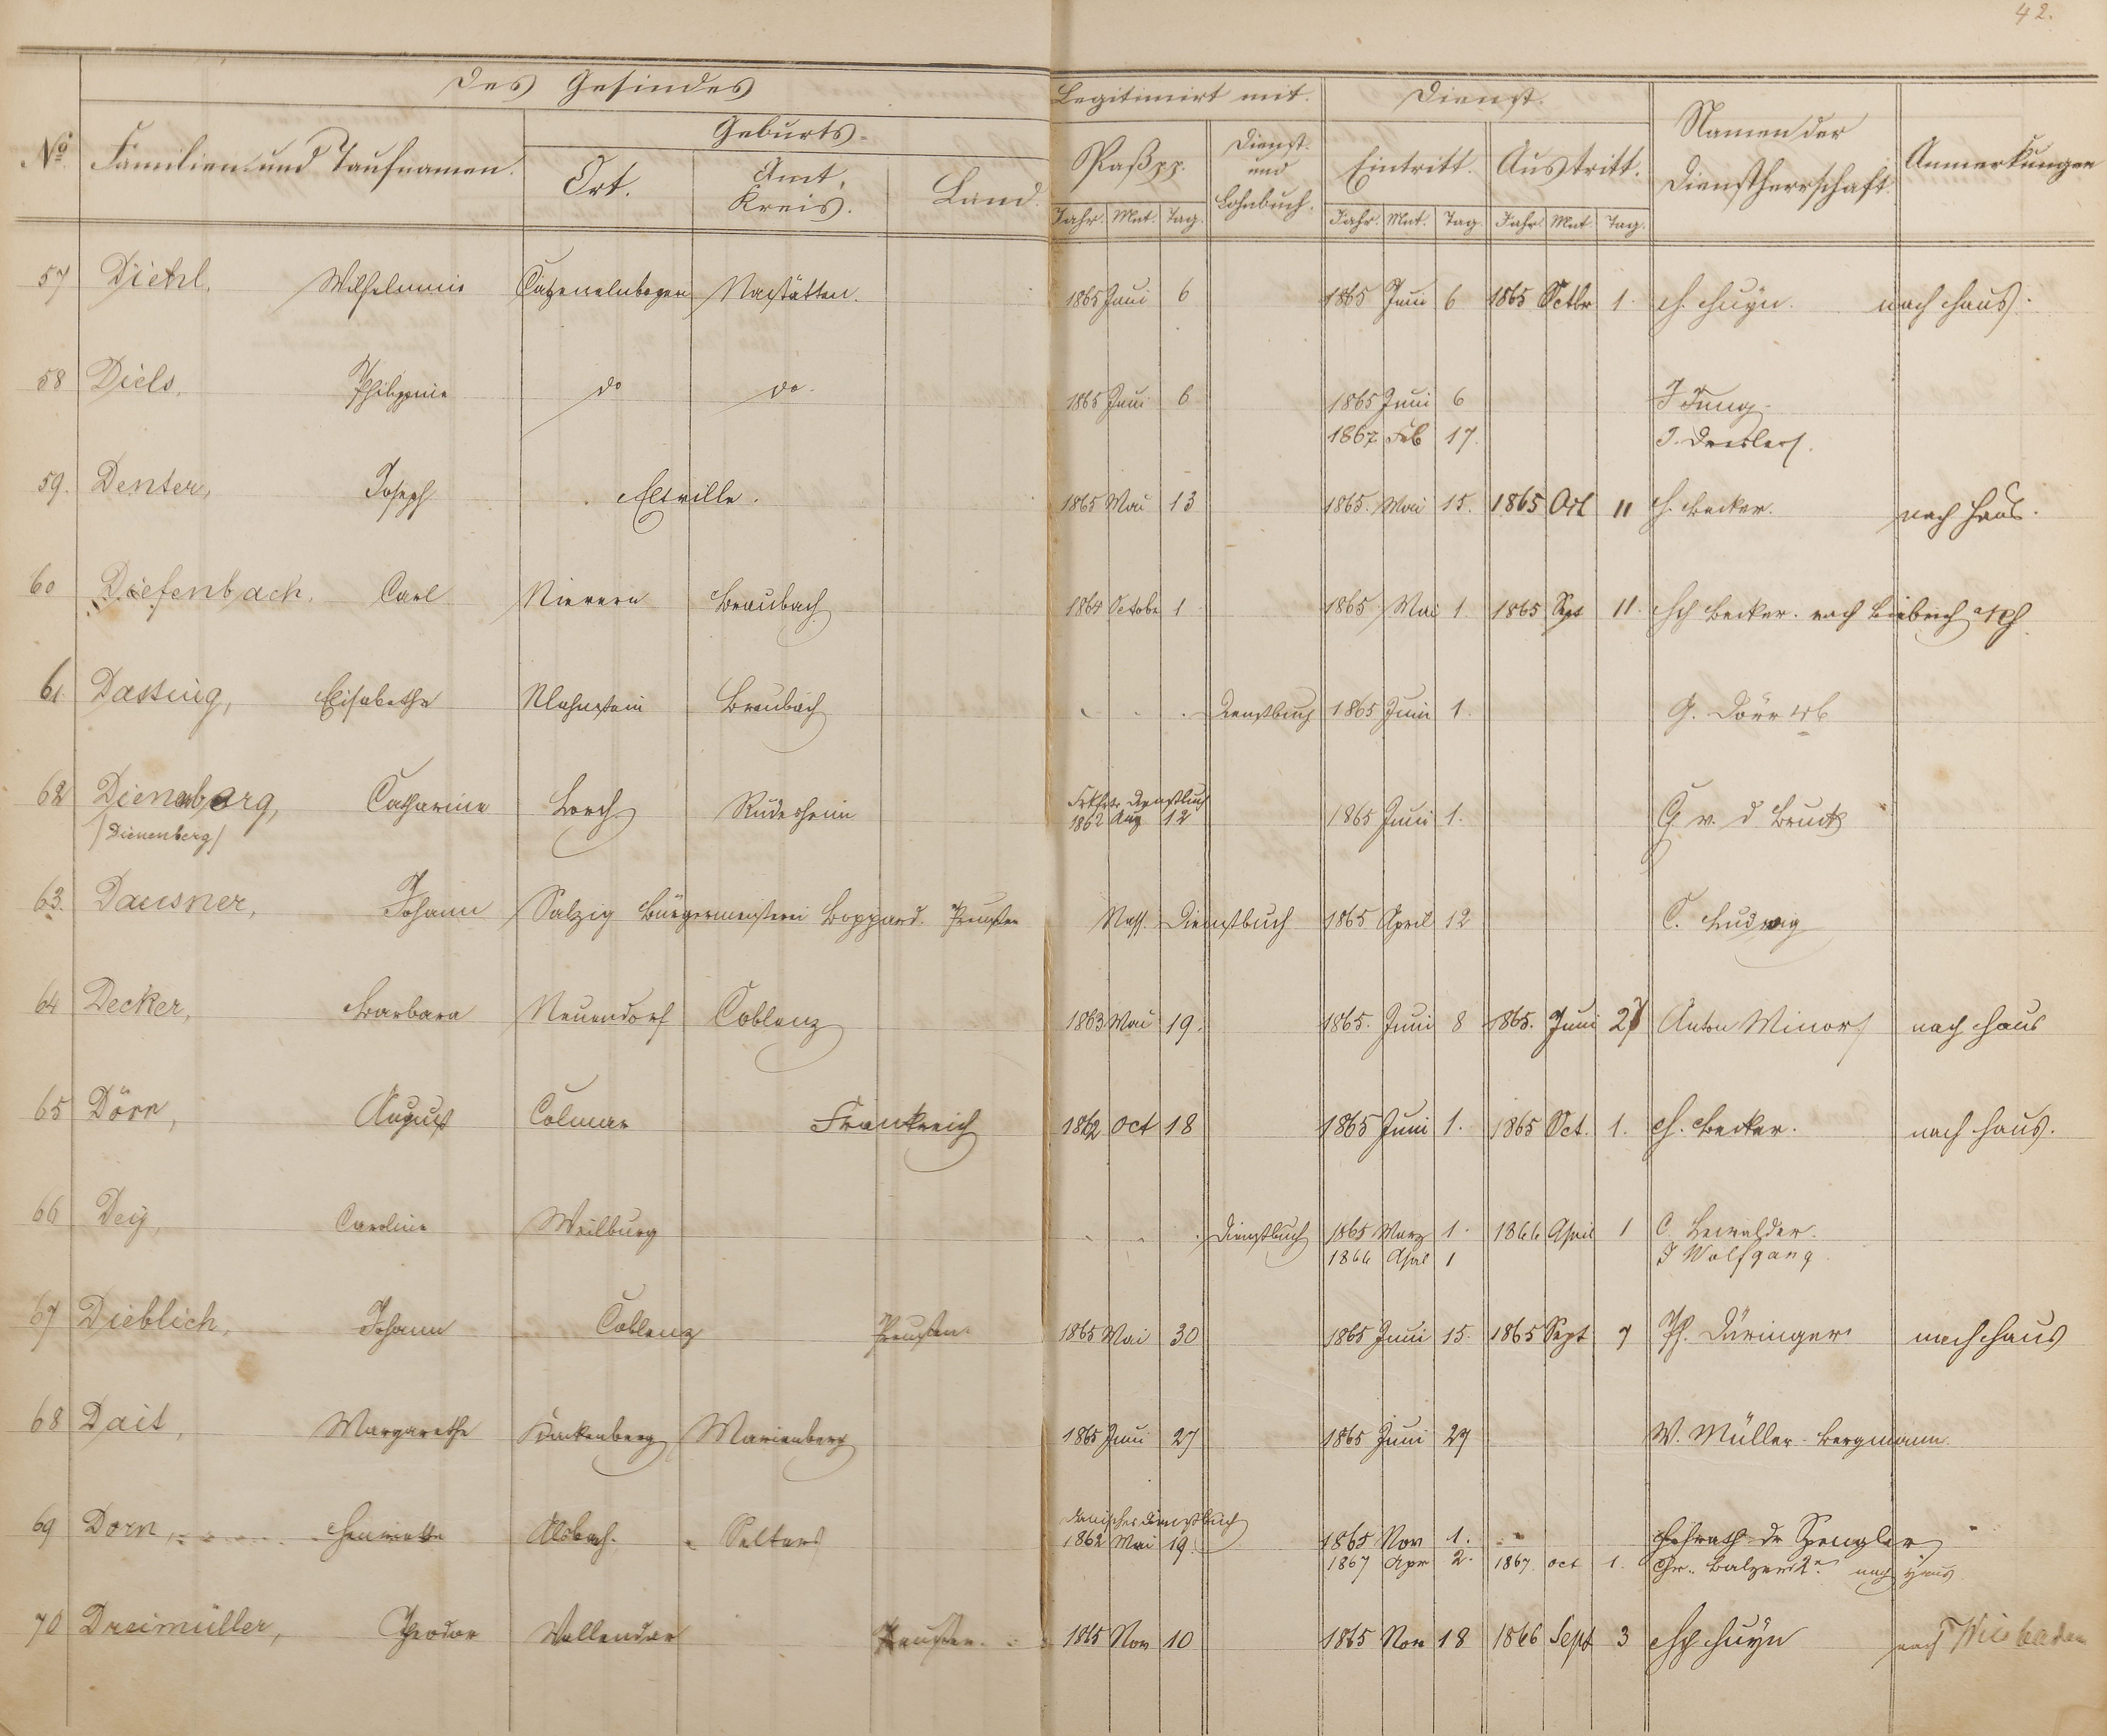 42.
Des Gesindes
Legitimirt mit.
Dienst.
No Familien- und Taufnamen.
Geburts-
Ort.
Amt, Kreis.
Land.
Paß pp.
Dienst- und Lohnbuch.
Eintritt.
Austritt.
Namen der Dienstherrschaft
Anmerkungen
Jahr. Mnt. Tag. Jahr. Mnt. Tag. Jahr. Mnt. Tag.
57 Diehl, Wilhelmine Catzenelnbogen Nastätten. 1865 Juni 6 1865 Juni 6 1865 Octbr 1. H. Huyn. nach Haus.
58 Diels, Philippine do do. 1865 Juni 6 1865 Juni 6 J Jung.
1867 Feb 17. J.
59. Denter, Joseph Eltville. 1865 Mai 13 1865. Mai 15. 1865 Oct 11 H. Becker. nach Haus.
60 Diefenbach, Carl Nievern Braubach 1864 Octobr 1 1865 Mai 1. 1865 Spt 11. Hch Becker. nach Biebrich
61. Dassing, Elisabethe Nlahnstein Braubach Dienstbuch 1865 Juni 1. G. Dörr
62 Dienenberg, Catharine Lorch Rüdesheim Dienstbuch
/Dienenberg/ 1862 Aug 12 1865 Juni 1. G v. d Bruck
63. Dausner, Johann Salzig Bürgermeisterei Boppard. Preußen Nass. Dienstbuch 1865 April 12 C. Ludwig
64 Decker, Barbara Neuendorf Coblenz 1863 Mai 19. 1865. Juni 8 1865. Juni 27 Anton Minor nach Haus
65 Dörr, August Colmar Frankreich 1862 Oct 18 1865 Juni 1. 1865 Oct. 1. H. Becker. nach Haus.
66 Dey, Caroline Weilburg Dienstbuch 1865 Marz 1. 1866 April 1 C.
1866 April 1 J Wolfgang
67 Dieblich, Johann Coblenz Preußen. 1865 Mai 30 1865 Juni 15. 1865 Sept 7 Ph. Düringer nach Haus
68 Dait, Margarethe Marienberg 1865 Juni 27 1865 Juni 27 W. Müller-Bergmann.
69 Dorn, Henriette Alsbach. Selters Dienstbuch
1862 Mai 19. 1865 Nov 1. Hofrath Dr Spengler
1867 Apr 2. 1867. oct 1. Chr. Balzer 2r nach Haus
70 Dreimüller, Theodor Vallendar Preußen. 1865 Nov 10 1865 Nov 18 1866 Sept 3 Hch Huyn nach Wiesbaden